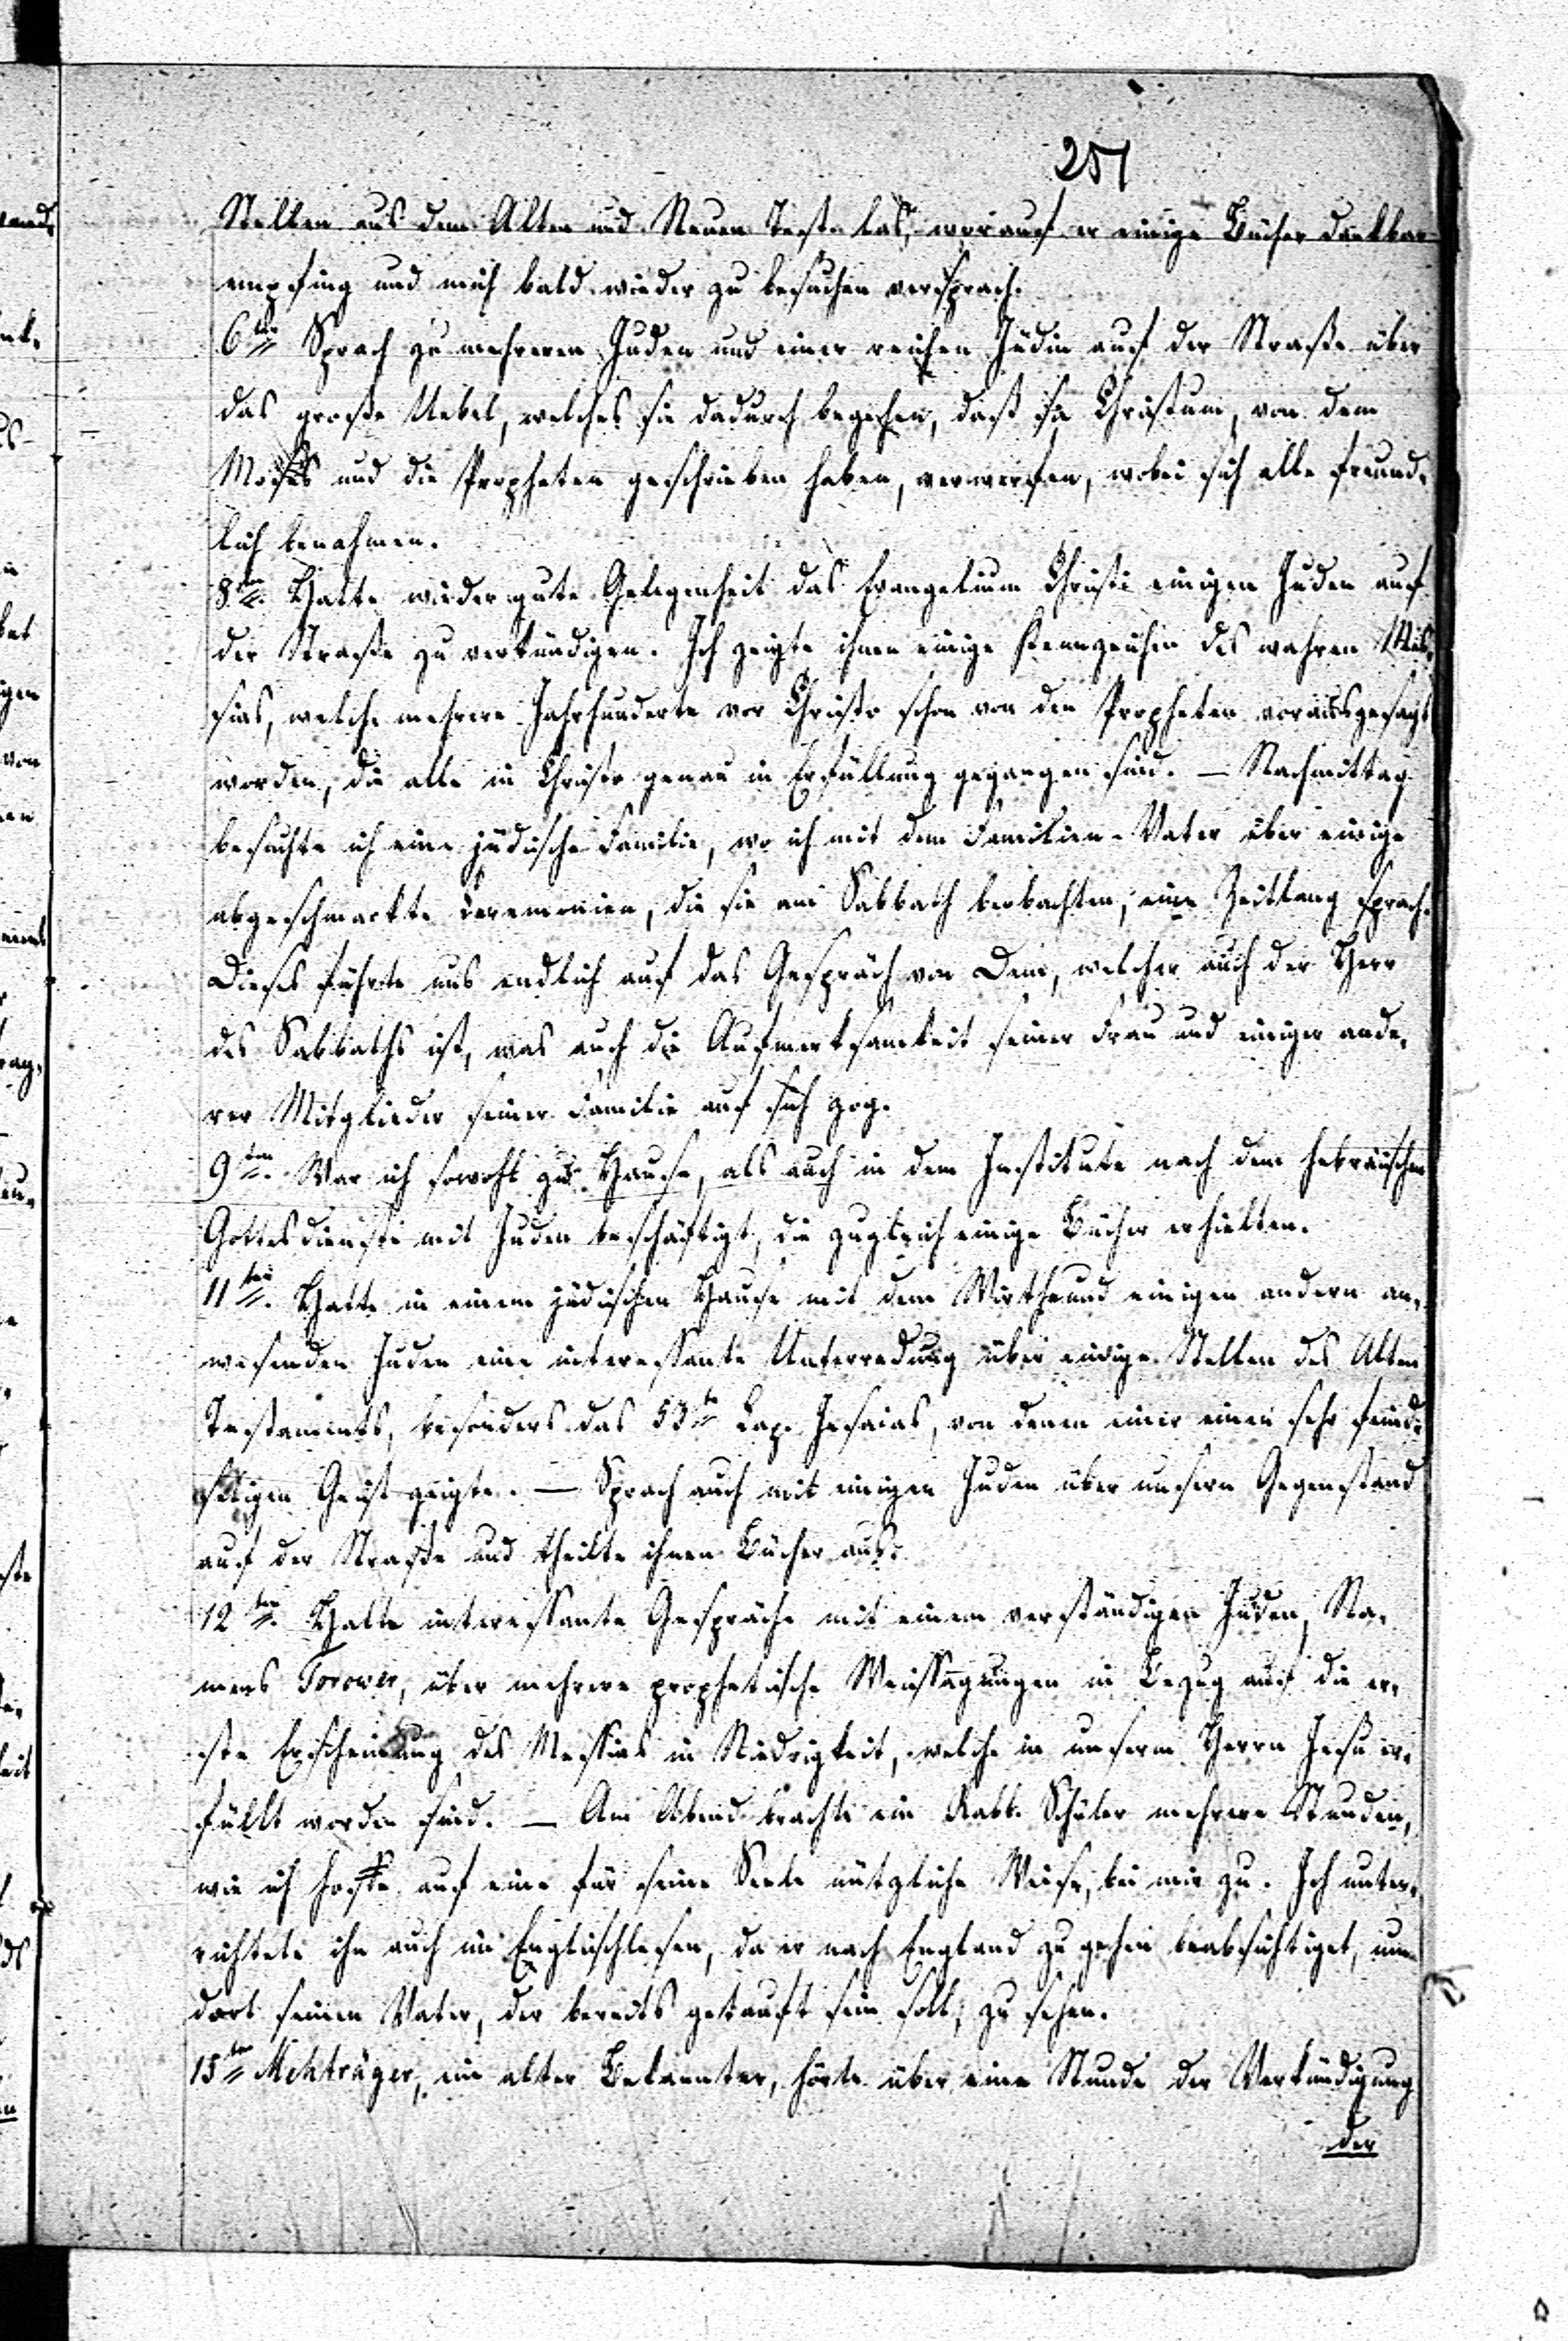 251
Stellen aus dem Alten und Neuen Test. las, worauf er einige Bücher dankbar
empfing und mich bald wieder zu besuchen versprach.
6ten Sprach zu mehreren Juden und einer reichen Jüdin auf der Straße über
das große Uebel, welches sie dadurch begehen, daß sie Christum, von dem
Moses und die Propheten geschrieben haben, verwerfen, wobei sich alle freund-
lich benahmen.
8ten. Hatte wieder gute Gelegenheit das Evangelium Christi einigen Juden auf
der Straße zu verkündigen. Ich zeigte ihnen einige Kennzeichen des wahren Mes-
sias, welche mehrere Jahrhunderte vor Christo schon von den Propheten vorausgesagt
worden, die alle in Christo genau in Erfüllung gegangen sind. — Nachmittag
besuchte ich eine jüdische Familie, wo ich mit dem Familien-Vater über einige
abgeschmackte Ceremonien, die sie am Sabbath beobachten, eine Zeitlang sprach.
Dieses führte uns endlich auf das Gespräch von Dem, welcher auch der Herr
des Sabbaths ist, was auch die Aufmerksamkeit seiner Frau und einiger ande-
rer Mitglieder seiner Familie auf sich zog.
9ten. War ich sowohl zu Hause, als auch in dem Institute nach dem hebräischen
Gottesdienste mit Juden beschäftigt, die zugleich einige Bücher erhielten.
11ten. Hatte in einem jüdischen Hause mit dem Wirthe und einigen andern an-
wesenden Juden eine interessante Unterredung über einige Stellen des Alten
Testaments, besonders das 53te Cap. Jesaias, von denen einer einen sehr feind-
seligen Geist zeigte. — Sprach auch mit einigen Juden über unsern Gegenstand
auf der Straße und theilte ihnen Bücher aus.
12ten. Hatte interessante Gespräche mit einem verständigen Juden, Na-
mens Torower, über mehrere prophetische Weissagungen in Bezug auf die er-
ste Erscheinung des Messias in Niedrigkeit, welche in unserm Herrn Jesu er-
füllt worden sind. — Am Abend brachte ein Rabb. Schüler mehrere Stunden,
wie ich hoffe auf eine für seine Seele nützliche Weise, bei mir zu. Ich unter-
richtete ihn auch im Englischlesen, da er nach England zu gehen beabsichtiget, um
dort seinen Vater, der bereits getauft sein soll, zu sehen.
15ten Mehträger, ein alter Bekannter, hörte über eine Stunde der Verkündigung
der